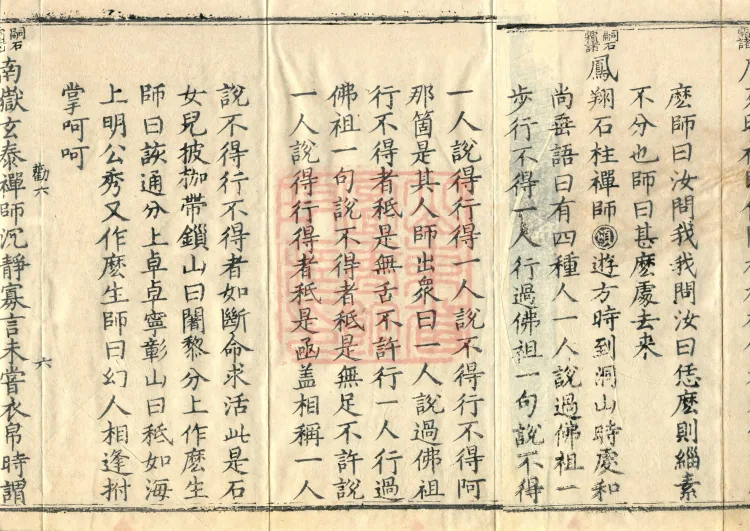 麽師曰汝問我我問汝曰恁麽則緇素
不分也師曰甚麽處去來
嗣石霜諸
鳳翔石柱禪師頌遊方時到洞山時虔和
尚垂語曰有四種人一人說過佛祖一
步行不得一人行過佛祖一句說不得
一人說得行得一人說不得行不得阿
那箇是其人師出衆曰一人說過佛祖
行不得者秖是無舌不許行一人行過
佛祖一句說不得者秖是無足不許說
一人說得行得者秖是函盖相稱一人
說不得行不得者如斷命求活此是石
女兒披枷帶鎖山曰闍黎分上作麽生
師曰該通分上卓卓寧彰山曰秖如海
上明公秀又作麽生師曰幻人相逢拊
掌呵呵
勸六 六
嗣石霜諸
南嶽玄泰禪師沉靜寡言未嘗衣帛時謂